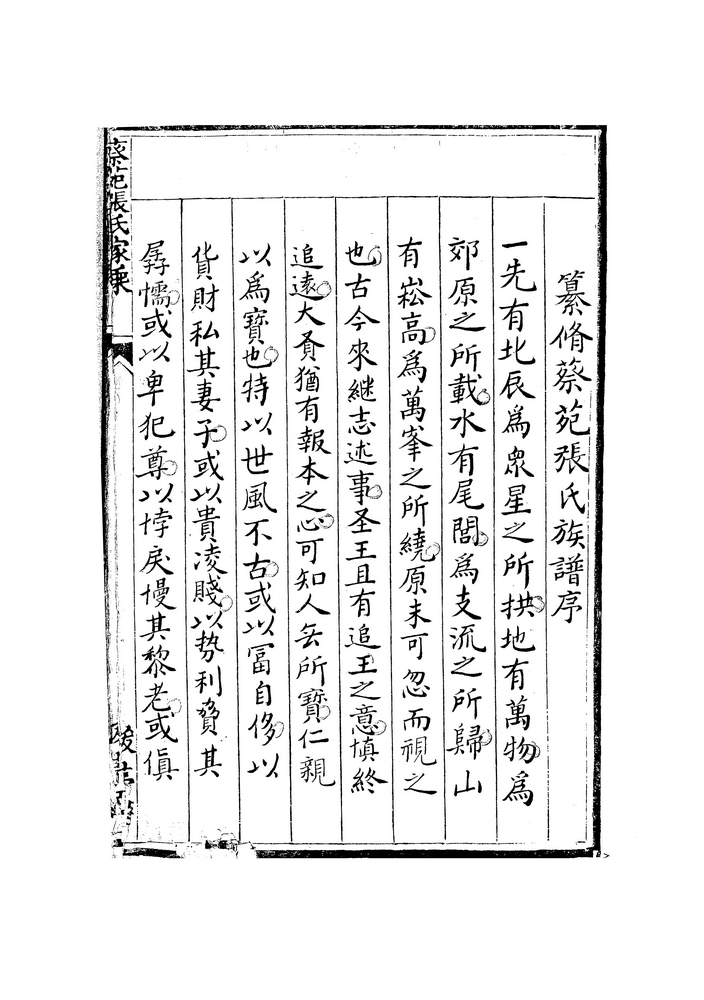 纂脩蔡苑張氏族譜序
一先有北辰爲衆星之所拱地有萬物爲
郊原之所載水有尾閭爲支流之所歸山
有崧高爲萬峯之所繞原未可忽而視之
也古今來継志述事圣王且有追王之意慎終
追遠大夫猶有報本之心可知人無所寶仁親
以爲寶也特以世風不古或以富自侈以
貨財私其妻子或以貴凌賤以势利賛其
孱懦或以卑犯尊以悖戾慢其黎老或傎
蔡苑張氏家乘